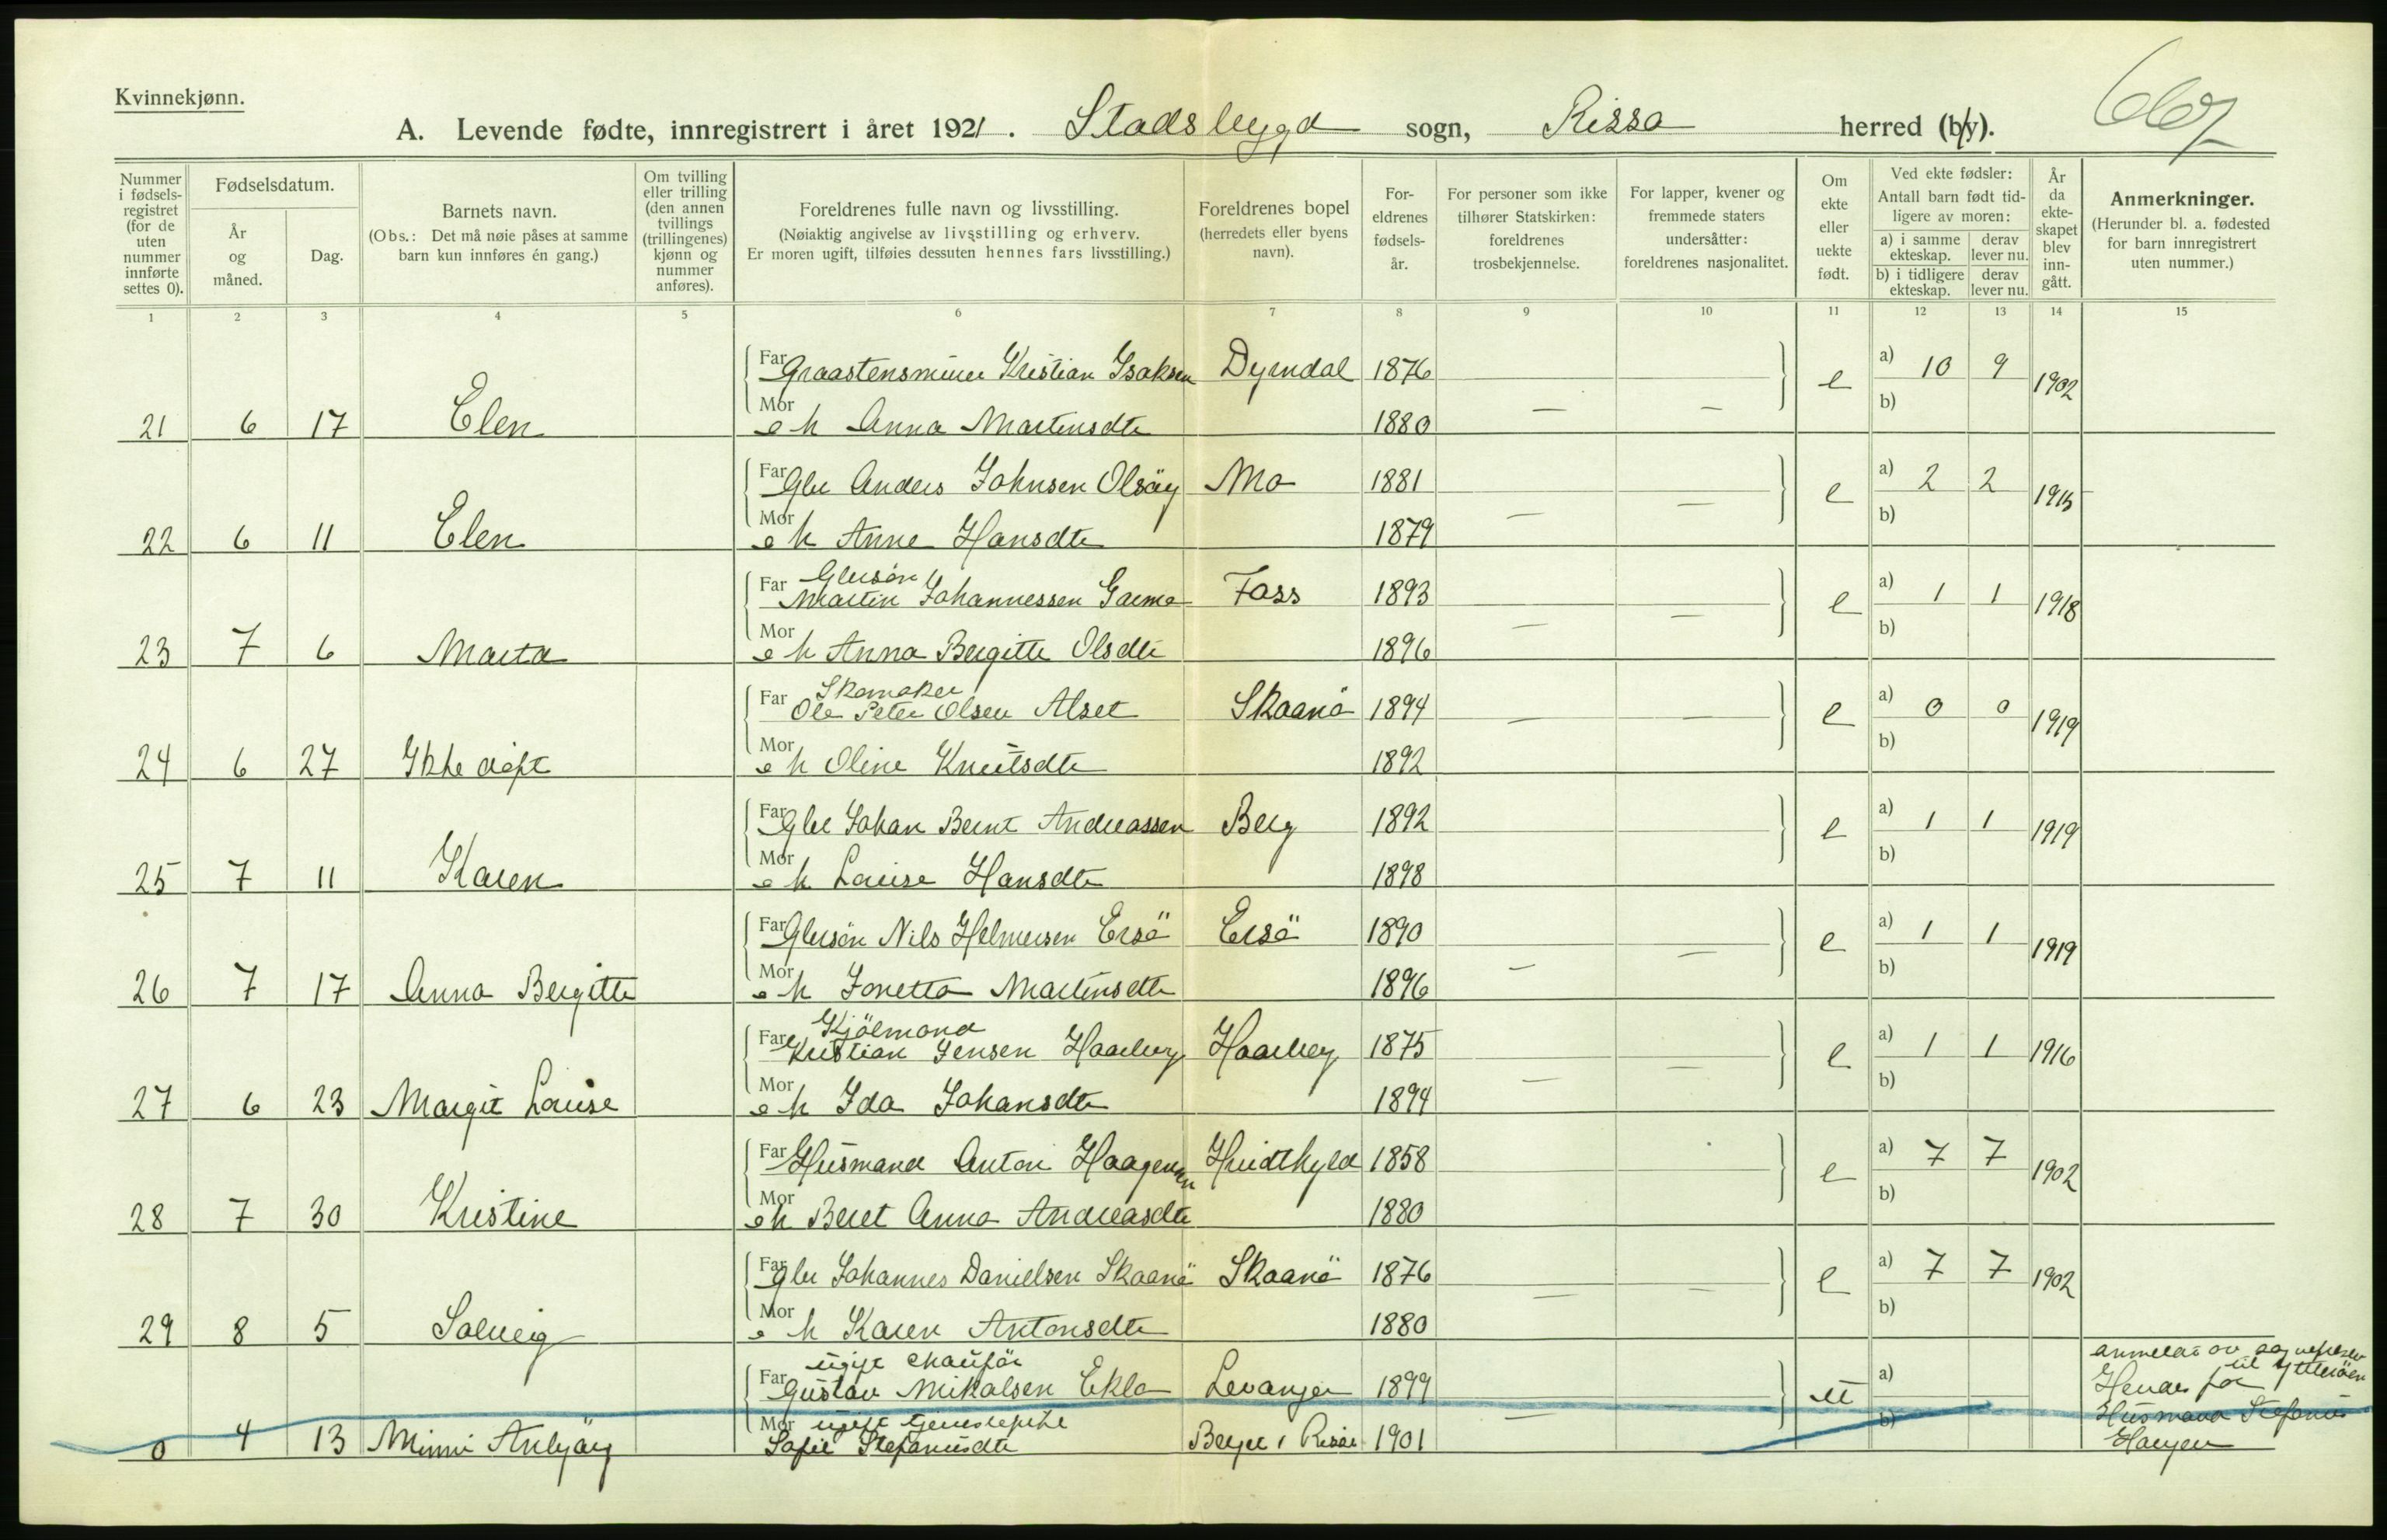 Kvinnekjønn.
A. Levende fødte, innregistrert i året 1921. Stadsbygd sogn, Rissa herred (by).
667
Nummer i fødselsregistret (for de uten nummer innførte settes 0).
Fødselsdatum.
År og måned.
Dag.
Barnets navn.
(Obs.: Det må nøie påses at samme barn kun innføres én gang.)
Om tvilling eller trilling (den annen tvillings (trillingenes) kjønn og nummer anføres).
Foreldrenes fulle navn og livsstilling.
(Nøiaktig angivelse av livsstilling og erhverv.
Er moren ugift, tilføies dessuten hennes fars livsstilling.)
Foreldrenes bopel (herredets eller byens navn).
Foreldrenes fødselsår.
For personer som ikke tilhører Statskirken: foreldrenes trosbekjennelse.
For lapper, kvener og fremmede staters undersåtter: foreldrenes nasjonalitet.
Om ekte eller uekte født.
Ved ekte fødsler:
Antall barn født tidligere av moren:
a) i samme ekteskap. derav lever nu.
b) i tidligere ekteskap. derav lever nu.
År da ekteskapet blev inngått.
Anmerkninger.
(Herunder bl. a. fødested for barn innregistrert uten nummer.)
1 2 3 4 5 6 7 8 9 10 11 12 13 14 15
Far Graastensminer Kristian Isaksen Dyrndal 1876 — — e a) 10 9 1902
21 6 17 Elen Mor e h Anna Martensdtr 1880 b)
Far Gbr Anders Johnsen Olsöy Mo 1881 — — e a) 2 2 1915
22 6 11 Elen Mor e h Anne Hansdtr 1879 b)
Gbrsön
Far Martin Johannessen Foss 1893 — — e a) 1 1 1918
23 7 6 Marta Mor e h Anna Bergitte Olsdtr 1896 b)
Skomaker
Far Ole Peter Olsen Alset Skaanö 1894 — — e a) 0 0 1919
24 6 27 Ikke døpt Mor e h Oline Knutsdtr 1892 b)
Far Gbr Johan Bernt Andreassen Berg 1892 e a) 1 1 1919
25 7 11 Karen Mor e h Louise Hansdtr 1898 b)
Far Gbrsön Nils Helmersen Ersö Ersö 1890 — — e a) 1 1 1919
26 7 17 Anna Bergitte Mor e h Jonetta Martinsdtr 1896 b)
Kjöemand
Far Kristian Jensen Haarberg Haarberg 1875 — — e a) 1 1 1916
27 6 23 Margit Louise Mor e h Ida Johansdtr 1894 b)
Far Husmand Anton Haagensen 1858 e a) 7 7 1902
28 7 30 Kristine Mor e h Beret Anna Andreasdtr 1880 b)
Far Gbr Johannes Danielsen Skaanö Skaanö 1876 — — e a) 7 7 1902
29 8 5 Solveig Mor e h Karen Antonsdtr 1880 b)
ugift chauför
Far Gustav Mikalsen Eklo Levanger 1899 — u a)
0 4 13 Minni Anbjörg Mor ugift tjenestepike
Sofie Stefanusdtr Berge i Rissa 1901 b)
anmeldt av sogneprest
til Ytterøen
Hendes far
Husmand Stefanus
Haugen